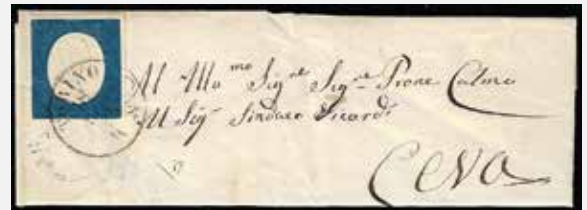 TORINO
Al Ill.mo Sig.re Sig.re Prone Calmo
Al Sig.r Sindaco Sicardi
Ceva